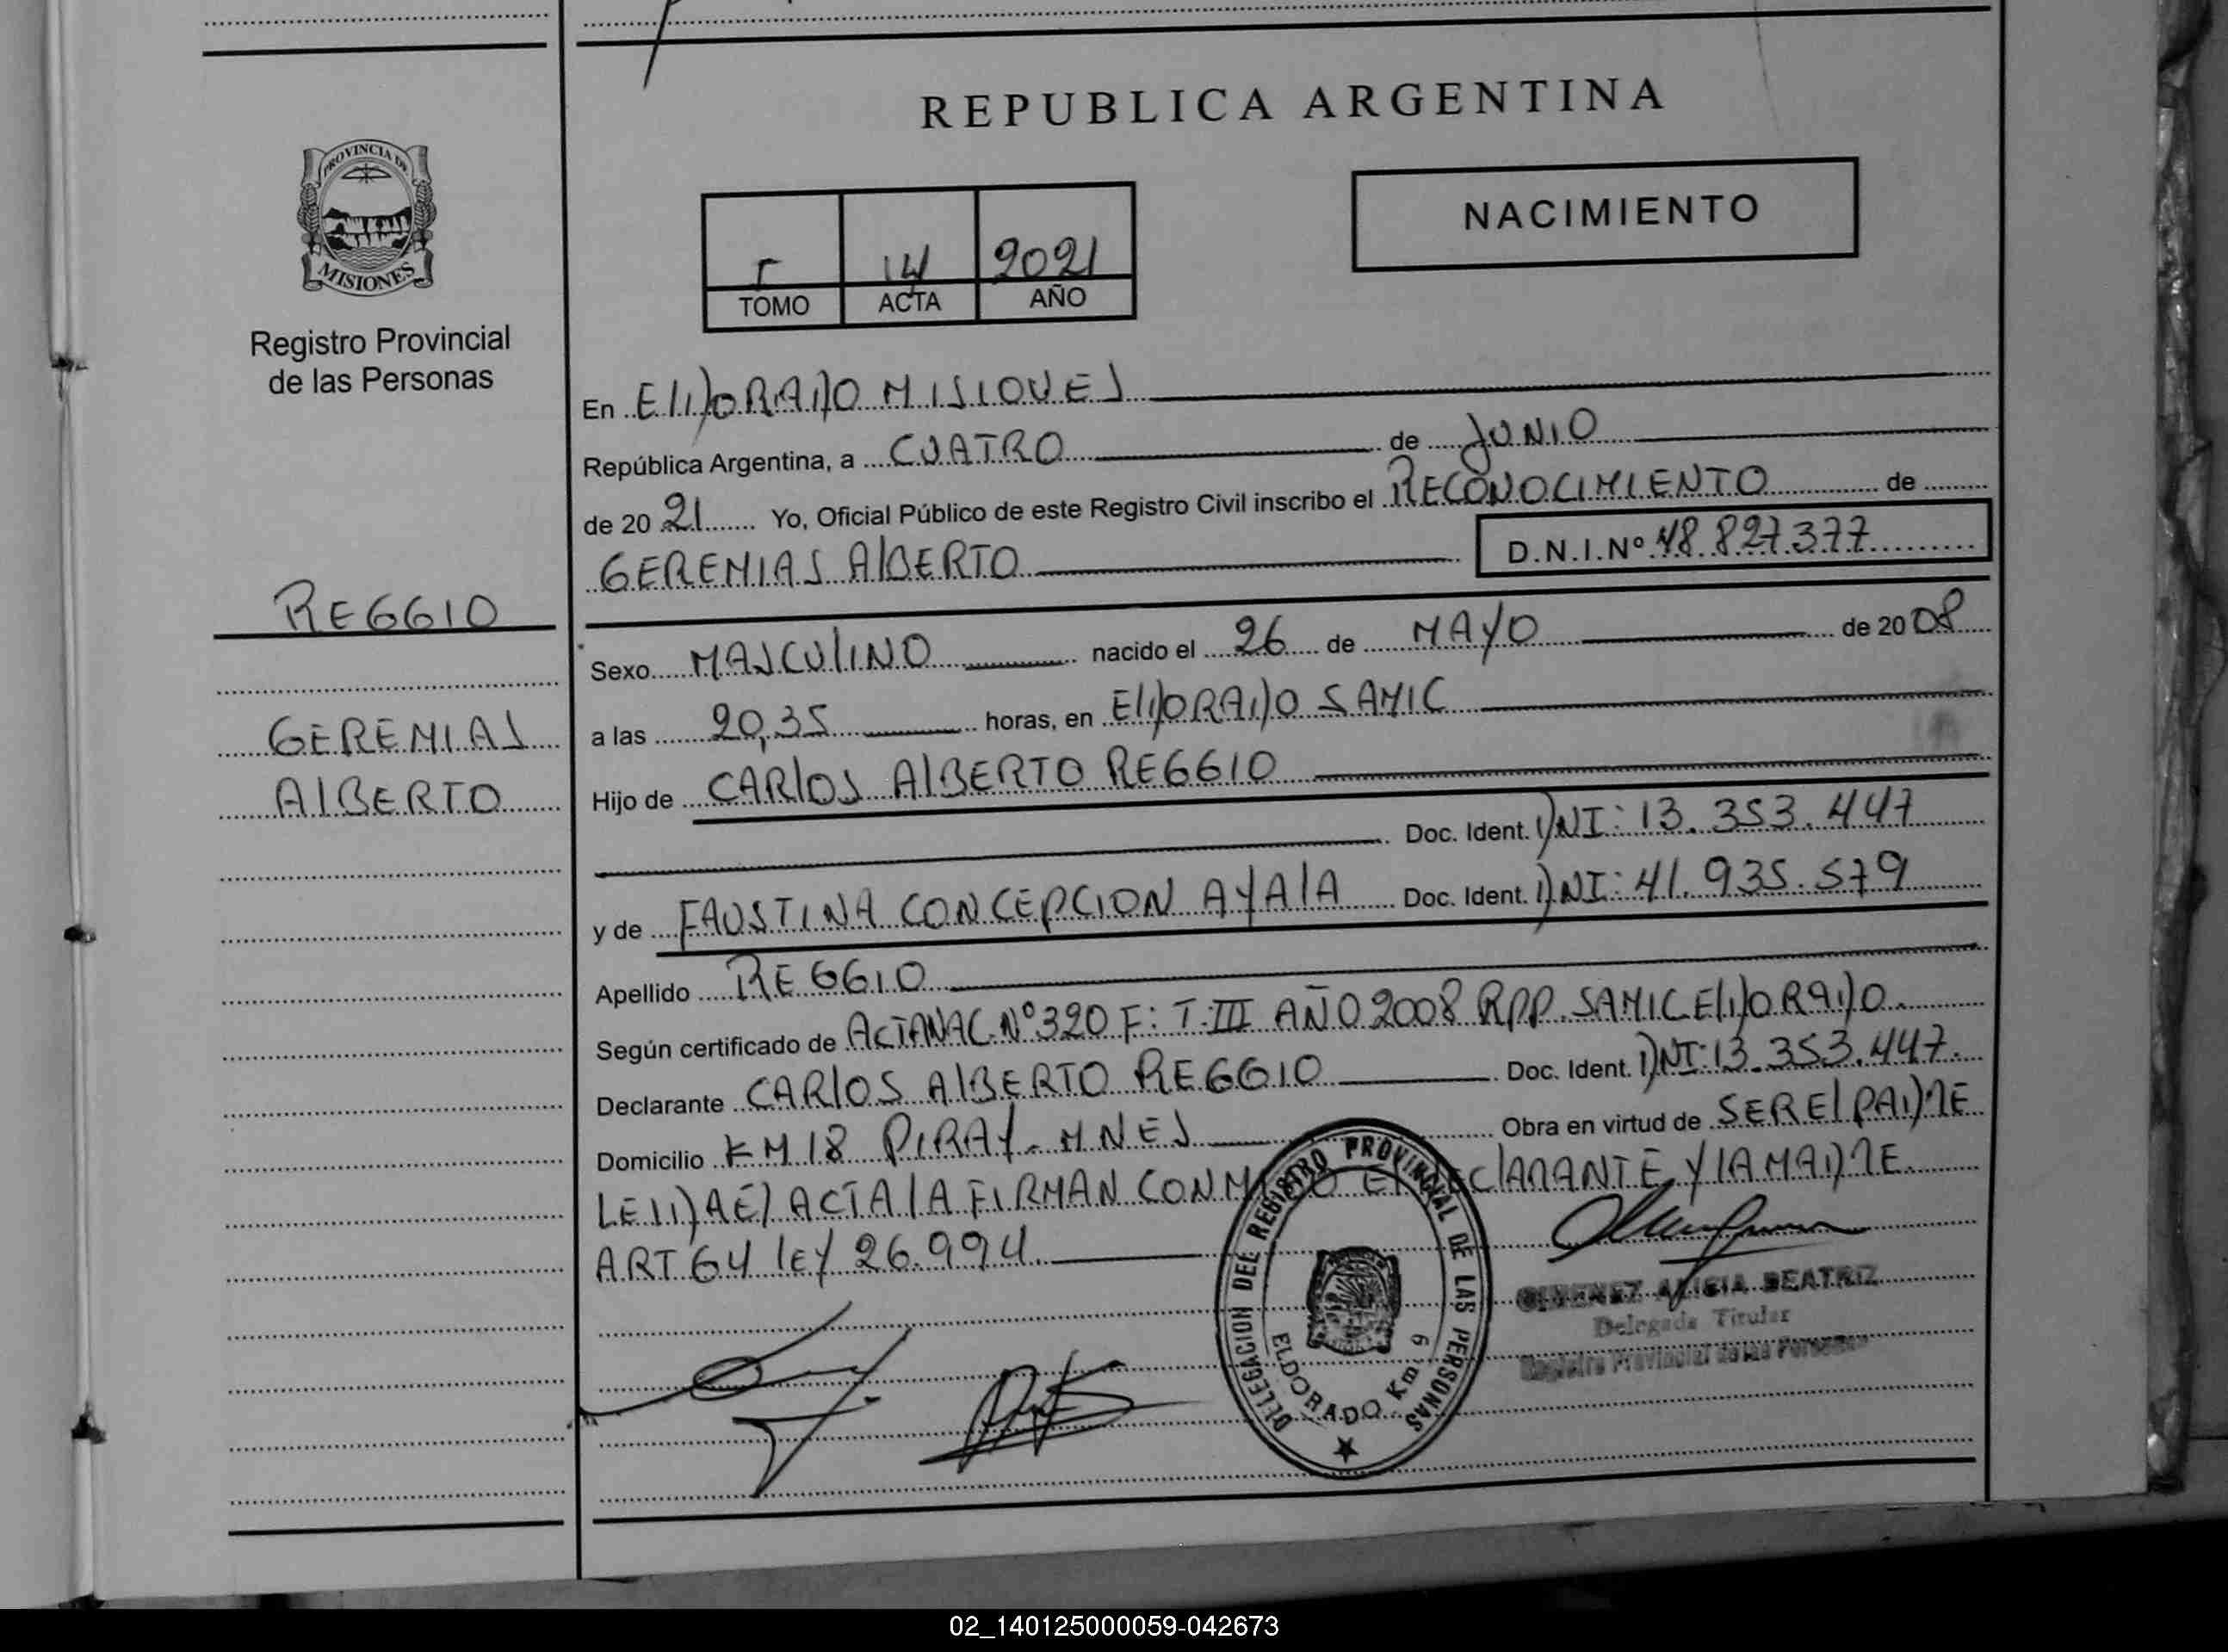 REPUBLICA ARGENTINA
PROVINCIA DE
MISIONES
Registro Provincial
de las Personas
REGGIO
GEREMIAS
ALBERTO
NACIMIENTO
I 14 2021
TOMO ACTA AÑO
En ELDORADO MISIONES
República Argentina, a CUATRO de JUNIO
de 2021 Yo, Oficial Público de este Registro Civil inscribo el RECONOCIMIENTO de
GEREMIAS ALBERTO D.N.I.Nº 48.827.377
Sexo MASCULINO nacido el 26 de MAYO de 2008
a las 20,35 horas, en ELDORADO SAMIC
Hijo de CARLOS ALBERTO REGGIO
Doc. Ident. DNI: 13.353.447
y de FAUSTINA CONCEPCION AYALA Doc. Ident. DNI: 41.935.579
Apellido REGGIO
Según certificado de ACTA NAC. Nº 320 F: T-III AÑO 2008 RPP. SAMIC ELDORADO.
Declarante CARLOS ALBERTO REGGIO Doc. Ident. DNI: 13.353.447.
Domicilio KM 18 PIRAY-MNES Obra en virtud de SER EL PADRE
LEIDA EL ACTA LA FIRMAN CONMIGO EL DECLARANTE Y LA MADRE.
ART 64 LEY 26.994.
DELEGACION DEL REGISTRO PROVINCIAL DE LAS PERSONAS
ELDORADO Km. 9
GIMENEZ ALICIA BEATRIZ
Delegada Titular
Registro Provincial de las Personas
02_140125000059-042673